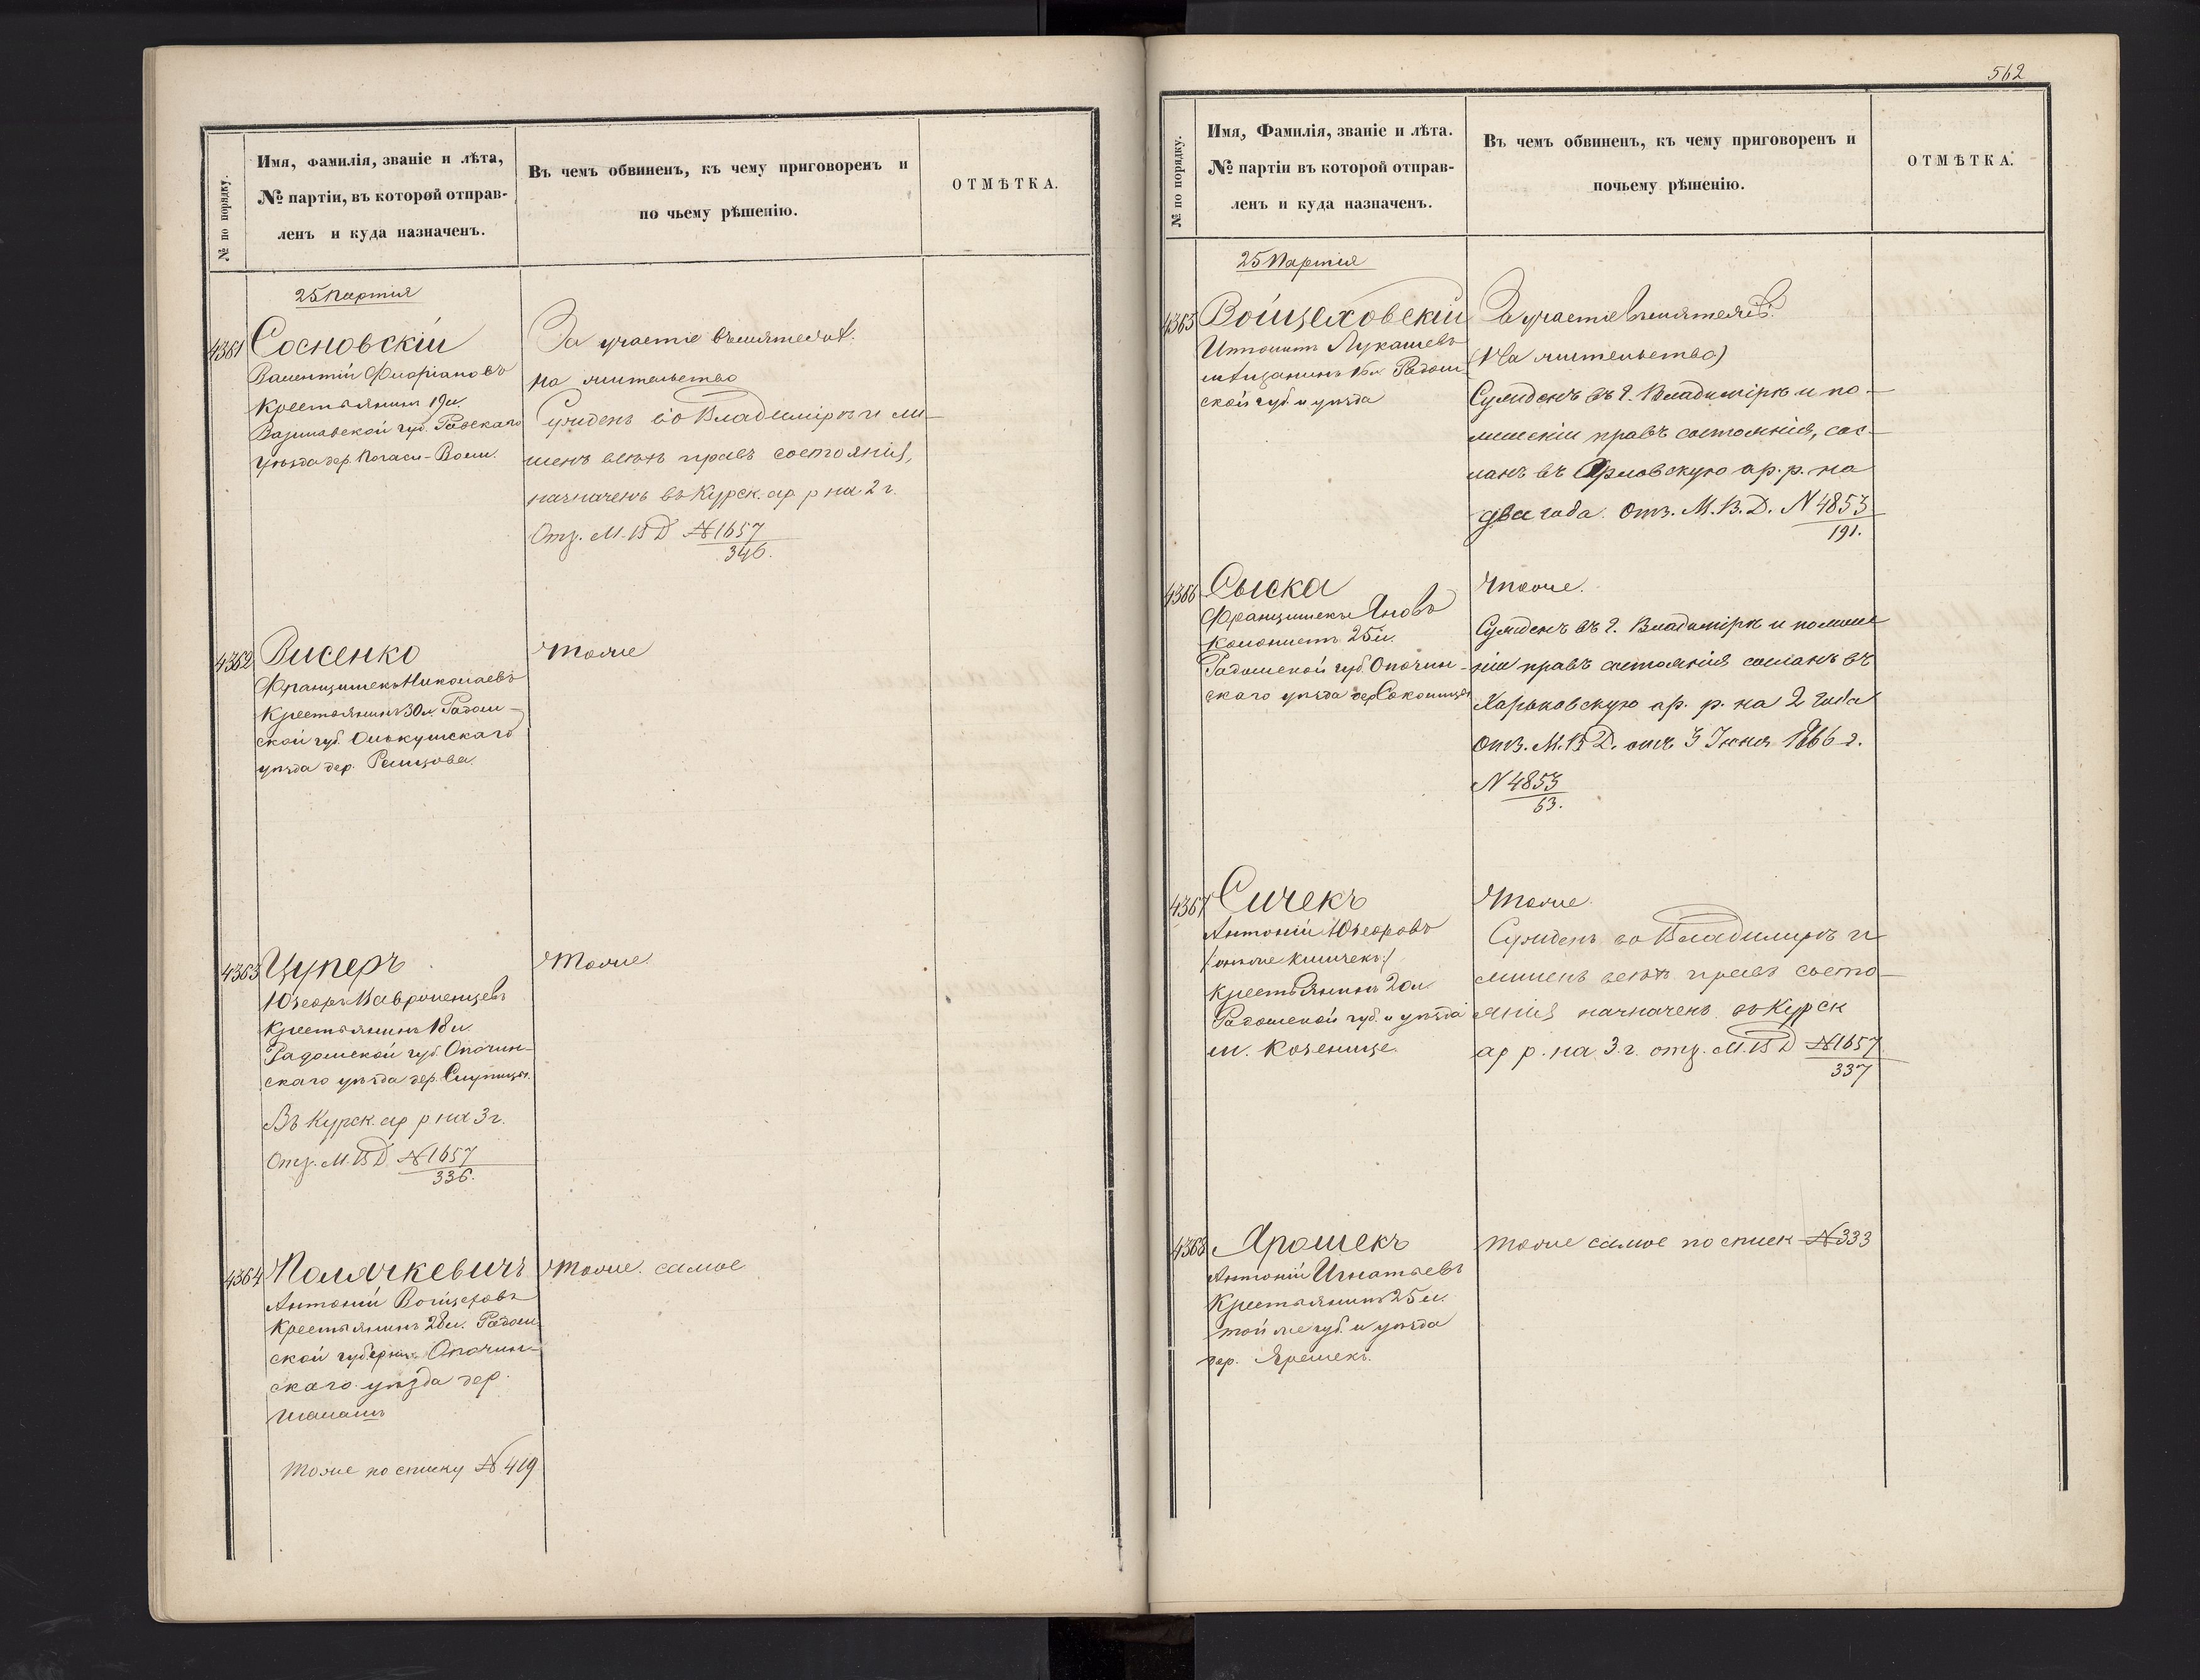 № по порядку.
Имя, фамилія, званіе и лѣта,
№ партіи, въ которой отправ-
ленъ и куда назначенъ.
Въ чемъ обвиненъ, къ чему приговоренъ и
по чьему рѣшенію.
ОТМѢТКА.
25 Партія
4361 Сосновскій
Валентій Флоріановъ
Крестьянинъ 19 л.
Варшавской губ. Равскаго
уѣзда дер.
За участіе въ мятежѣ.
на жительство
Сужденъ во Владимірѣ и ли-
шенъ всѣхъ правъ состоянія,
назначенъ въ Курск. ар р на 2 г.
Отз. М. В Д №1657
346.
4362 Висенко
Францишекъ Николаевъ
Крестьянинъ 30 л. Радом-
ской губ. Олькушскаго
уѣзда дер.
тоже
4363 Цуперъ
Юзефъ Вавроненцевъ
Крестьянинъ 18 л.
Радомской губ. Опочин-
скаго уѣзда дер.
Въ Курск. ар р на 3 г.
Отз. М. В Д №1657
336.
тоже.
4364 Полячкевичъ
Антоній Войцеховъ
Крестьянинъ 28 л. Радом
ской губерніи Опочин-
скаго уѣзда дер.
тоже по списку № 419
тоже. самое
562
№ по порядку.
Имя, Фамилія, званіе и лѣта.
№ партіи въ которой отправ-
ленъ и куда назначенъ.
Въ чем обвиненъ, къ чему приговоренъ и
почьему рѣшенію.
ОТМѢТКА.
25 Партія
4365 Войцеховскій
Лукашевъ
мѣщанинъ Радом
ской губ. и уѣзда
За участіе въ мятежѣ.
(На жительство)
Сужденъ въ г. Владимірѣ и по-
лишеніи правъ состоянія, сос-
ланъ въ Орловскую ар. р. на
два года. Отз. М. В. Д. № 4853
191.
4366 Сыска
Францишекъ Яновъ
Колонистъ 25 л.
Радомской губ. Опочин-
скаго уѣзда дер.
тоже.
Сужденъ въ г. Владимірѣ и по лише
ніи правъ состоянія сосланъ въ
Харьковскую ар. р. на 2 года
Отз. М. В Д. отъ 3 Іюня 1866 г.
№ 4853
63.
4367 Сичекъ
Антоній Юзефовъ
Крестьянинъ 20 л.
Радомской губ. и уѣзда
м. Козенице
тоже.
Сужденъ во Владимірѣ и
лишенъ всѣхъ правъ состо-
янія назначенъ въ Курск
ар р. на 3. г. отз. М. В Д №1657
337
4368 Ярошекъ
Антоній Игнатьевъ
Крестьянинъ 25 л.
той же губ. и уѣзда
дер.
тоже самое по списк №333